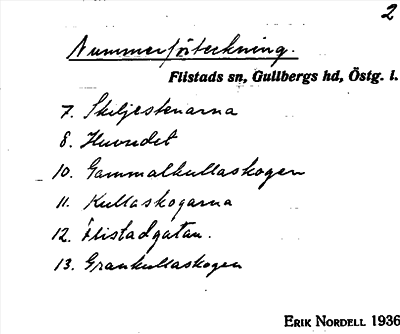 2
Nummerförteckning.
Flistads sn, Gullbergs hd, Östg. l.
7. Skiljestenarna
8. Huvudet
10. Gammalkullaskogen
11. Kullaskogarna
12. Flistadgatan.
13. Grankullaskogen
ERIK NORDELL 1936